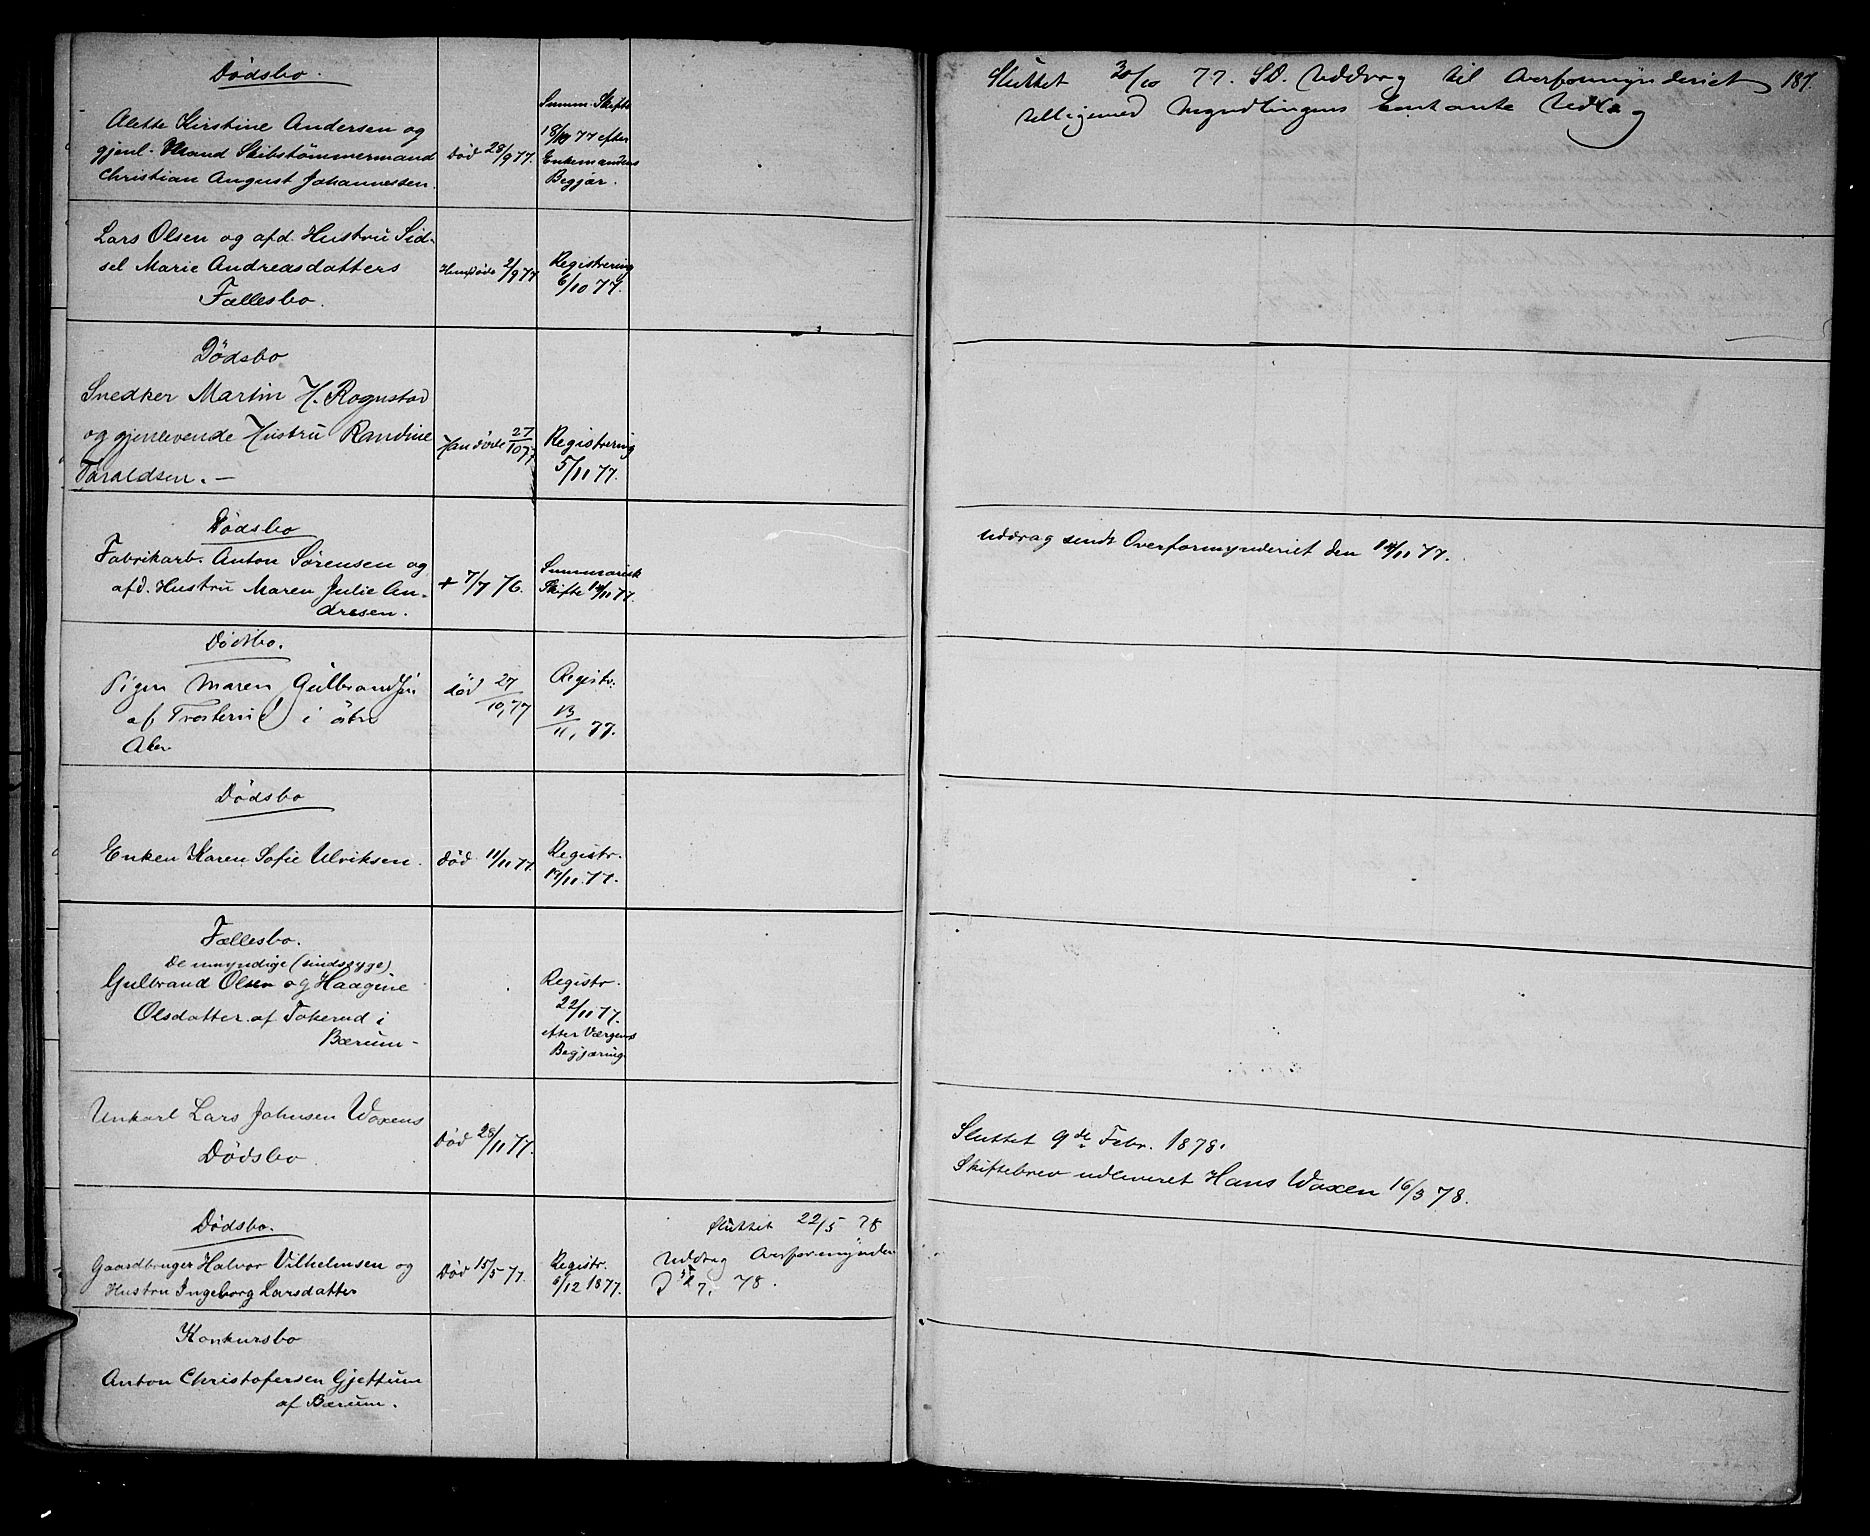 Dødsbo.
Alette Kirstine Andersen og
gjenl. Mand Skibstømmermand
Christian August Johannessen.
Død 28/9 77.
Summ. Skifte
18/10 77 efter
Enkemandens
Begjær.
Sluttet 30/10 77. S.D. Uddrag til Overformynderiet
tilligemed Myndlingens kontante Udlæg
187.
Lars Olsen og afd. Hustru Sid-
sel Marie Andreasdatters
Fællesbo.
Hun døde 2/9 77
Registrering
6/10 77.
Dødsbo
Snedker Martin H. Rognstad
og gjenlevende Hustru Randine
Taraldsen. —
Han døde 27/10 77
Registrering
5/11 77.
Dødsbo
Fabrikarb. Anton Sørensen og
afd. Hustru Maren Julie An-
dresen.
+ 7/7 76.
Summarisk
Skifte 14/11 77.
Uddrag sendt Overformynderiet den 14/11 77.
Dødsbo.
Pigen Maren Gulbrandsen
af Trosterud i Østre
Aker
død 27/10, 77
Registr.
13/11, 77.
Dødsbo
Enken Karen Sofie Ulriksen.
Død 11/11 77.
Registr.
17/11 77.
Fællesbo.
De umyndige (sindssyge)
Gulbrand Olsen og Haagine
Olsdatter af Tokerud i
Bærum -
Registr.
22/11 77.
efter Værgens
Begjæring
Unkarl Lars Johnsen Woxens
Dødsbo
Død 28/11 77.
Sluttet 9de Febr. 1878.
Skiftebrev udleveret Hans Woxen 16/3 78.
Dødsbo.
Gaardbruger Halvor Vilhelmsen og
Hustru Ingeborg Larsdatter
Død 15/5 77.
Registr.
6/12 1877.
Sluttet 22/5 78
Uddrag Overformynder
78.
Konkursbo
Anton Christofersen Gjettum
af Bærum.